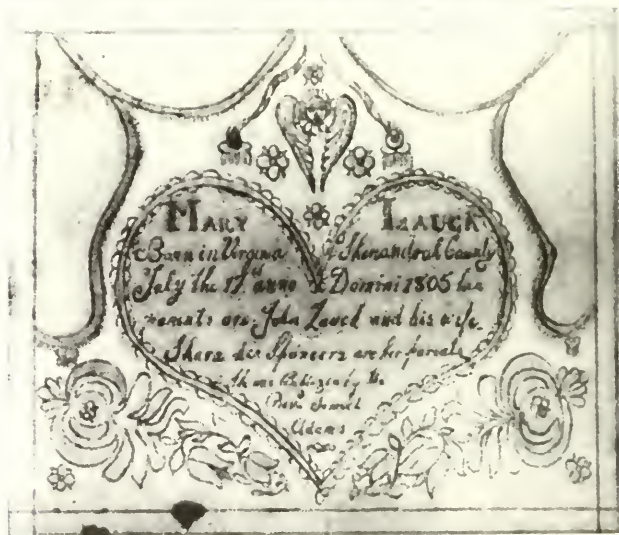 MARY LAUCK
Born in Virginia Shenandoah County
July the 17th anno Domini 1805 her
parents are John Lauck and his wife
Sponcers are her parents
the
Revd
Adams